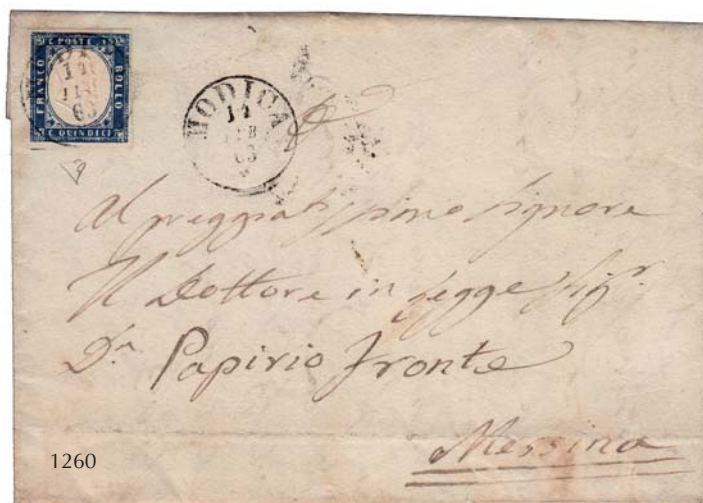 C. POSTE 15
FRANCO
BOLLO
C. QUINDICI
MODICA
14
FEB
63
Al preggiatissimo Signore
Il Dottore in Legge Sigr.
Dn Papirio Fronte
Messina
1260